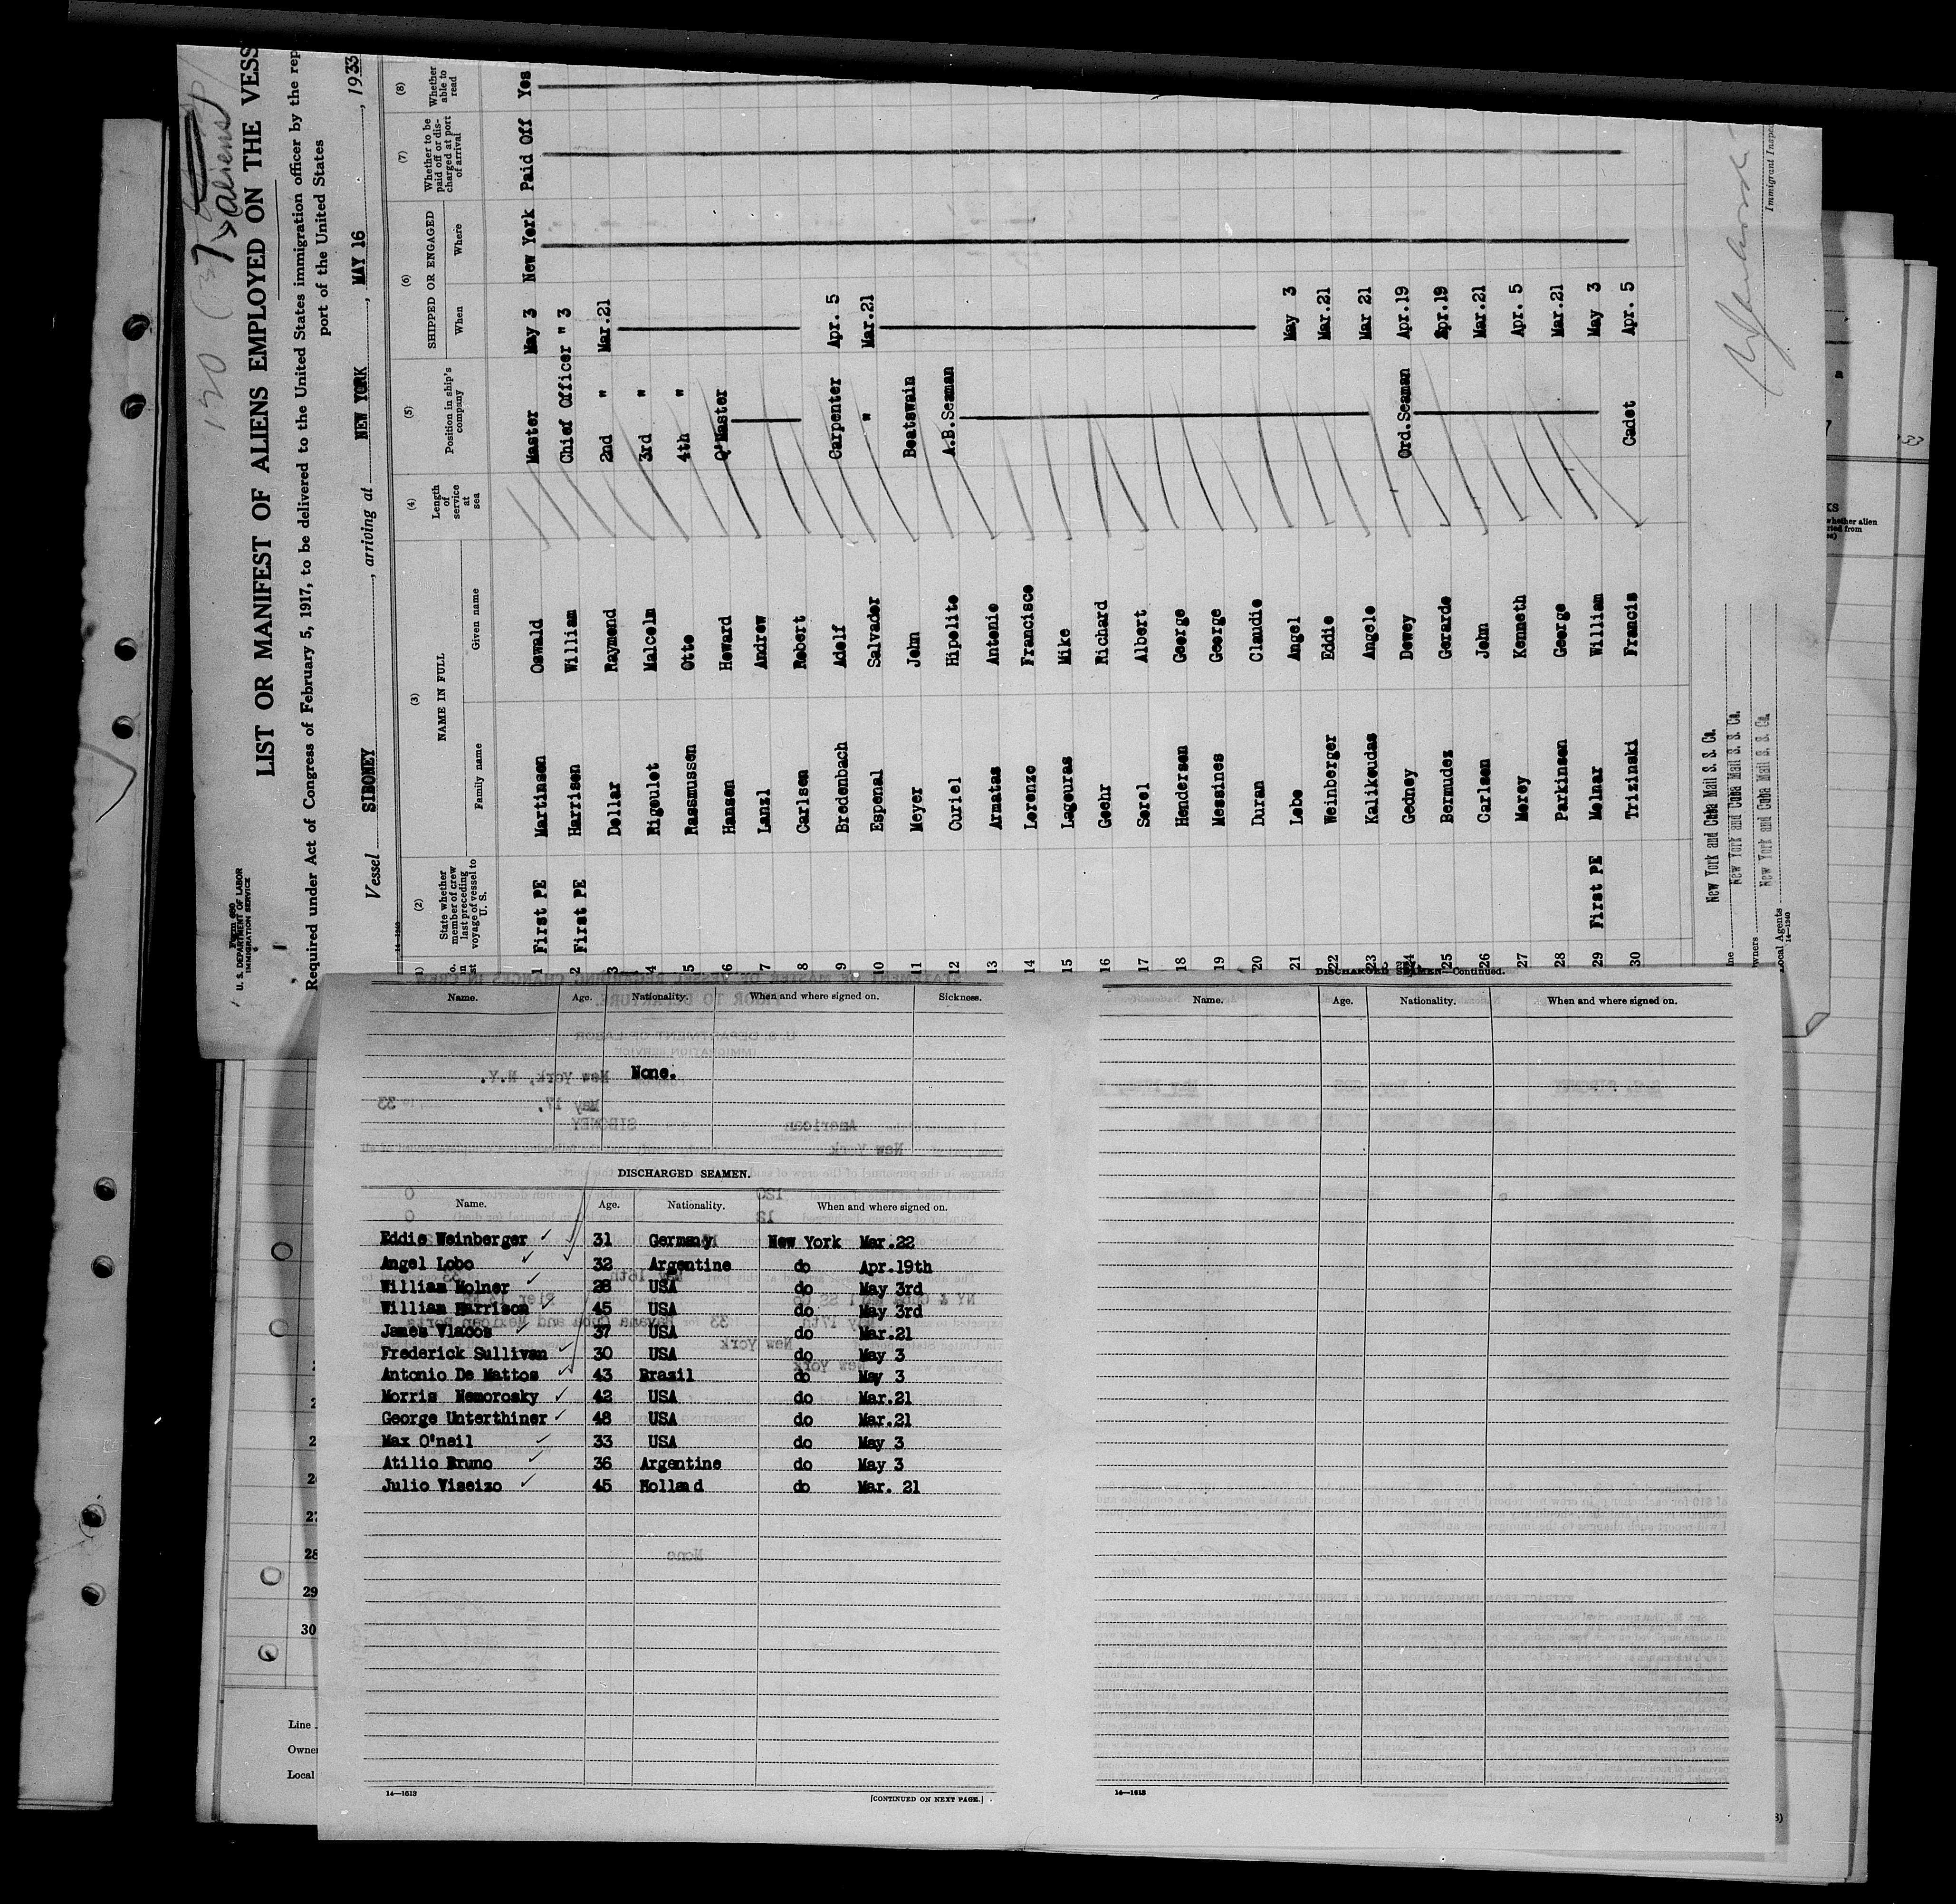 120 (37 aliens)
Form 680
U. S. DEPARTMENT OF LABOR
IMMIGRATION SERVICE
LIST OR MANIFEST OF ALIENS EMPLOYED ON THE VESS
Required under Act of Congress of February 5, 1917, to be delivered to the United States immigration officer by the rep
port of the United States
Vessel SIBONEY, arriving at NEW YORK, MAY 16, 1933
14—1240
(2) (3) (4) (5) (6) (7) (8)
State whether member of crew last preceding voyage of vessel to U. S.
NAME IN FULL
Family name Given name
Length of service at sea
Position in ship's company
SHIPPED OR ENGAGED
When Where
Whether to be paid off or discharged at port of arrival
Whether able to read
1 First PE Martinsen Oswald Master May 3 New York Paid Off Yes
2 First PE Harrisen William Chief Officer " 3
3 Dollar Raymond 2nd " Mar.21
4 Rigoulet Malcolm 3rd "
5 Rasmussen Otto 4th "
6 Hansen Howard Q'Master
7 Lanzl Andrew
8 Carlsen Robert
9 Bredenbach Adolf Carpenter Apr. 5
10 Espenal Salvador " Mar.21
11 Meyer John Boatswain
12 Curiel Hipolito A.B.Seaman
13 Armatas Antonio
14 Lorenzo Francisco
15 Lagouras Mike
16 Goehr Richard
17 Sorel Albert
18 Henderson George
19 Messines George
20 Duran Claudio
21 Lobo Angel May 3
22 Weinberger Eddie Mar.21
23 Kalikoudas Angelo Mar 21
24 Gedney Dewey Ord.Seaman Apr.19
25 Bermudez Gerardo Apr.19
26 Carlson John Mar.21
27 Morey Kenneth Apr. 5
28 Parkinson George Mar.21
29 First PE Molnar William May 3
30 Trizinski Francis Cadet Apr. 5
New York and Cuba Mail S. S. Co.
New York and Cuba Mail S. S. Co.
New York and Cuba Mail S. S. Co.
Local Agents
14—1240
Immigrant Inspec
Name. Age. Nationality. When and where signed on. Sickness.
None.
DISCHARGED SEAMEN.
Name. Age. Nationality. When and where signed on.
Eddie Weinberger 31 Germany New York Mar.22
Angel Lobo 32 Argentine do Apr.19th
William Molner 28 USA do May 3rd
William Harrison 45 USA do May 3rd
James Vlacos 37 USA do Mar.21
Frederick Sullivan 30 USA do May 3
Antonio De Mattos 43 Brazil do May 3
Morris Nemorosky 42 USA do Mar.21
George Unterthiner 48 USA do Mar.21
Max O'neil 33 USA do May 3
Atilio Bruno 36 Argentine do May 3
Julio Viseizo 45 Holland do Mar. 21
14—1613
[CONTINUED ON NEXT PAGE.]
DISCHARGED SEAMEN—Continued.
Name. Age. Nationality. When and where signed on.
14—1613
28
29
30
Line
Owne
Local